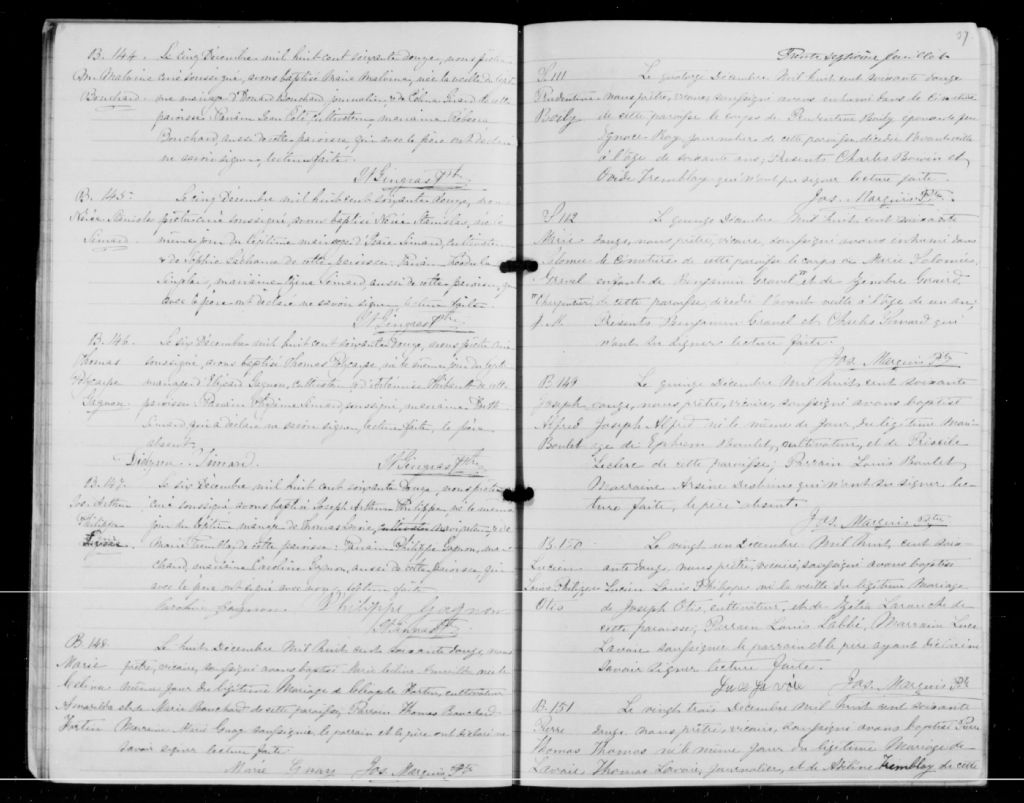 B. 144. Le cinq Décembre mil huit cent soixante douze, nous prêtre
Mie Malvina curé soussigné, avons baptisé Marie Malvina, née la veille du légiti-
Bouchard. me mariage d'Edouard Bouchard journalier, & de Célina Girard de cette
paroisse. Parrain Jean Côté cultivateur, marraine
Bouchard, aussi de cette paroisse, qui avec le père ont déclaré
ne savoir signer, lecture faite.
Gingras Ptre
B. 145 Le cinq Décembre mil huit cent soixante douze, nous
prêtre curé soussigné, avons baptisé Stanislas, né le
Simard. même jour du légitime mariage d' Simard, cultivateur
& de Sophie de cette paroisse. Parrain
marraine Simard, aussi de cette paroisse, qui
avec le père ont déclaré ne savoir signer lecture faite.
Gingras Ptre
B. 146. Le six Décembre mil huit cent soixante douze, nous prêtre curé
Thomas soussigné, avons baptisé Thomas Polycarpe, né le même jour du légitime
Polycarpe mariage d'Elzéar Gagnon, cultivateur & d'Artémise de cette
Gagnon. paroisse. Parrain Simard, soussigné, marraine
Simard qui a déclaré ne savoir signer, lecture faite, le père
absent.
Simard. Gingras Ptre
B. 147. Le six Décembre mil huit cent soixante douze, nous prêtre
Jos. Arthur curé soussigné, avons baptisé Joseph Arthur Philippe, né le même
Philippe jour du légitime mariage de Thomas Lavoie, cultivateur navigateur, & de
Lavoie. Marie Tremblay de cette paroisse. Parrain Philippe Gagnon, mar-
chand, marraine Caroline Gagnon, aussi de cette paroisse qui
avec le père ont signé avec nous, lecture faite
Caroline Gagnon Philippe Gagnon
Gingras Ptre
B. 148 Le huit Decembre Mil Huit cent Soixante douze, nous
Marie prêtre, vicaire, soussigné avons baptisé Marie Célina née le
Célina même jour du légitime Mariage de Fortin, cultivateur
et de Marie Bouchard de cette paroisse, Parrain Thomas Bouchard
Fortin Marraine Marie Guay soussignée, le parrain et le père ont déclaré ne
savoir signer lecture faite
Marie Guay Jos. Marquis Ptr
37.
Trente septième feuillet
S 111 Le quatorze Décembre Mil huit cent soixante douze
Prudentienne nous prêtre, vicaire, soussigné avons enhumé dans le Cimetière
Boily de cette paroisse le corps de Prudentienne Boily épouse de feu
Ignace Roy journalier de cette paroisse décédée l'avant veille
à l'âge de soixante ans; Présents Charles Boivin et
Ovide Tremblay qui n'ont pu signer lecture faite.
Jos. Marquis Ptr.
S 112 Le quinze Décembre Mil huit cent soixante
Marie douze, nous prêtre, vicaire, soussigné avons enhumé dans
Philomée le cimetière de cette paroisse le corps de Marie Philomée,
Gravel enfant de Benjamin Gravel et de Zénobie Girard,
"Charpentier de cette paroisse, décédée l'avant veille à l'âge de un an;
J. M. Présents Benjamin Gravel et Charles Simard qui
n'ont su signer lecture faite.
Jos. Marquis Ptr
B 149 Le quinze Décembre Mil Huit cent soixante
Joseph douze, nous prêtre, vicaire, soussigné avons baptisé
Alfred Joseph Alfred né le même jour du légitime Mari-
Boulet age de Ephrem Boulet, cultivateur, et de Priscile
Leclerc de cette paroisse; Parrain Louis Boulet,
Marraine Arsène qui n'ont su signer lec-
ture faite, le père absent.
Jos. Marquis Ptr
B. 150 Le vingt un Décembre Mil Huit cent soix-
Lucien ante douze, nous prêtre, vicaire, soussigné avons baptisé
Louis Philippe Lucien Louis Philippe né la veille du légitime Mariage
Otis de Joseph Otis, cultivateur, et de Zélia de
cette paroisse; Parrain Louis Labbé, Marraine Luce
Lavoie soussignée le parrain et le père ayant déclaré ne
savoir signer lecture faite.
Luce La voie Jos. Marquis Ptr
B. 151 Le vingt trois Décembre Mil huit cent soixante
Pierre douze nous prêtre, vicaire, soussigné avons baptisé Pierre
Thomas Thomas né le même jour du légitime Mariage de
Lavoie Thomas Lavoie, journalier, et de Tremblay de cette